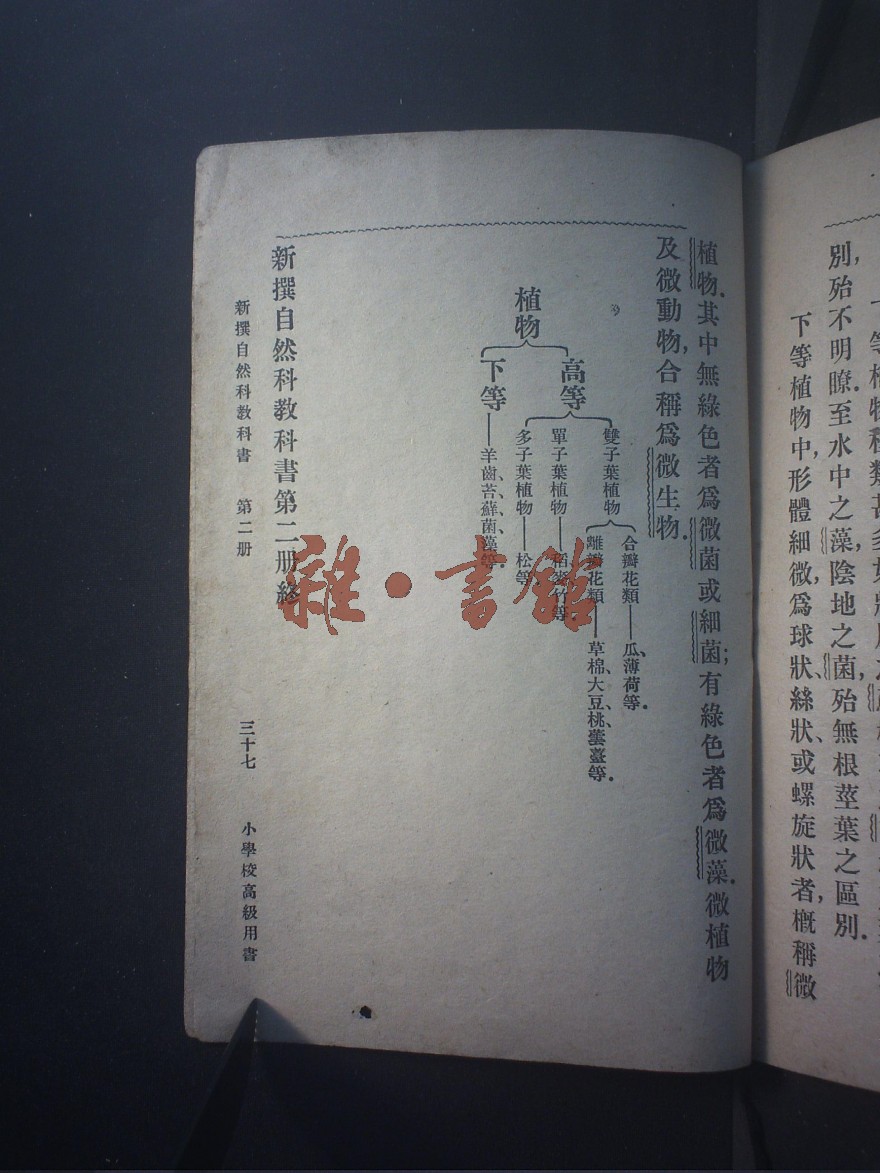 別,殆不明瞭.至水中之藻,陰地之菌,殆無根莖葉之區別.
下等植物中,形體細微,爲球狀、絲狀、或螺旋狀者,概稱微
植物.其中無綠色者爲微菌或細菌;有綠色者爲微藻.微植物
及微動物,合稱爲微生物.
植物
高等
雙子葉植物
合瓣花類——瓜、薄荷等.
離瓣花類——草棉、大豆、桃、蕓薹等.
單子葉植物——稻、麥、竹等.
多子葉植物——松等.
下等——羊齒、苔、蘚、菌、藻等.
新撰自然科教科書第二册終
新撰自然科教科書 第二册 三十七 小學校高級用書
雜·書館